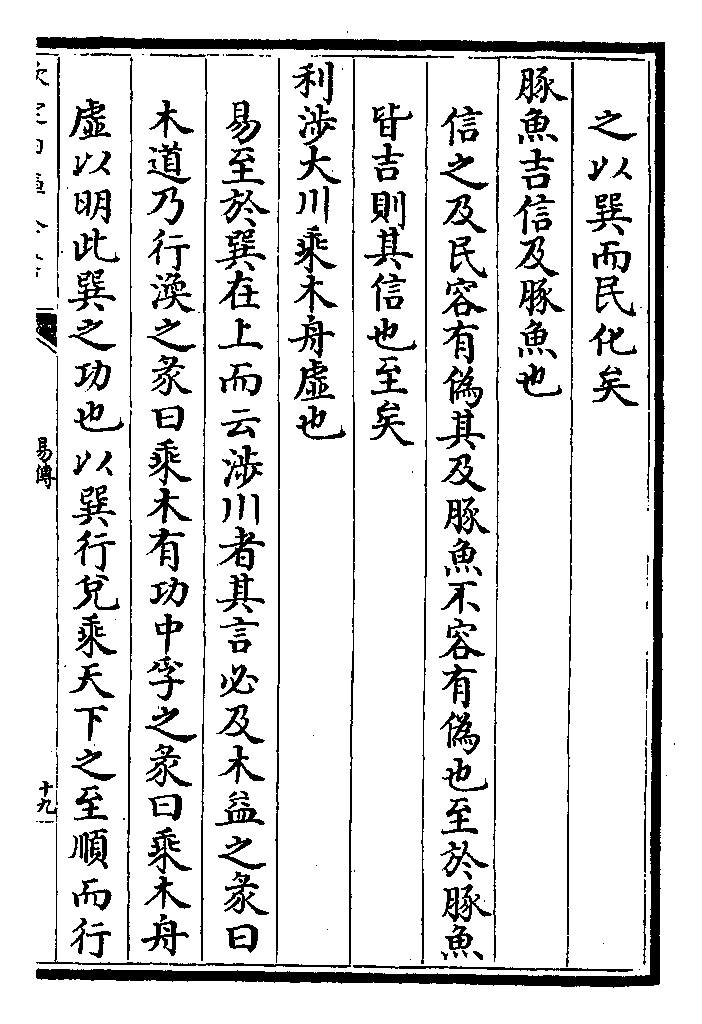 之以巽而民化矣
豚魚吉信及豚魚也
信之及民容有偽其及豚魚不容有偽也至於豚魚
皆吉則其信也至矣
利涉大川乘木舟虛也
易至於巽在上而云涉川者其言必及木益之彖曰
木道乃行渙之彖曰乘木有功中孚之彖曰乘木舟
虛以明此巽之功也以巽行兌乘天下之至順而行
易傳
十九